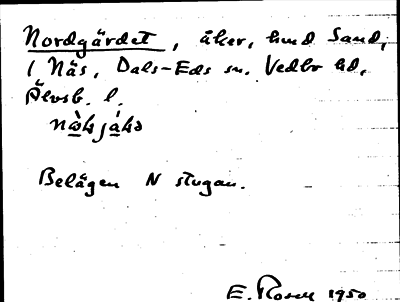 Nordgärdet, åker, hmd Sand,
1 Näs, Dals-Eds sn. Vedbo hd,
Älvsb. l.
Belägen N stugan.
E. Rosell 1950